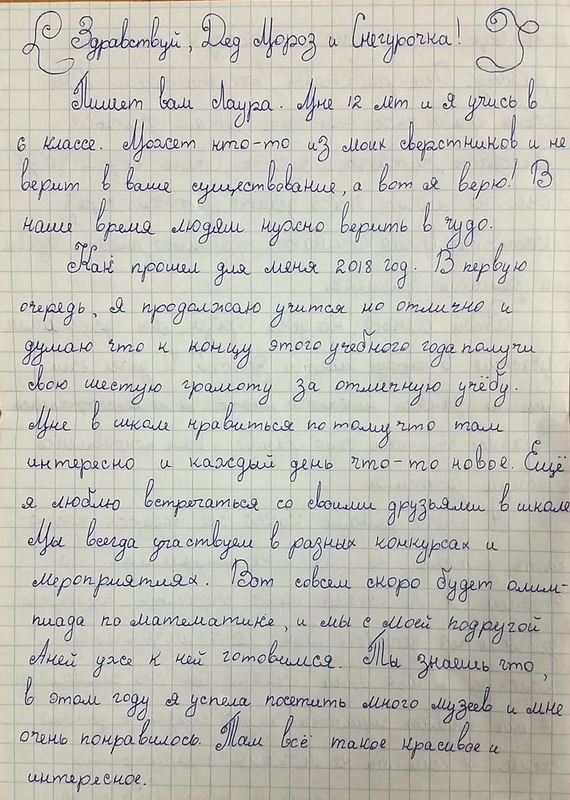 Здравствуй, Дед Мороз и Снегурочка!
Пишет вам Лаура. Мне 12 лет и я учусь в
6 классе. Может кто-то из моих сверстников и не
верит в ваше существование, а вот я верю! В
наше время людям нужно верить в чудо.
Как прошел для меня 2018 год. В первую
очередь, я продолжаю учится на отлично и
думаю что к концу этого учебного года получи
свою шестую грамоту за отличную учёбу.
Мне в школе нравиться потому что там
интересно и каждый день что-то новое. Ещё
я люблю встречаться со своими друзьями в школе
Мы всегда участвуем в разных конкурсах и
мероприятиях. Вот совсем скоро будет олим-
пиада по математике, и мы с моей подругой
Аней уже к ней готовимся. Ты знаешь что,
в этом году я успела посетить много музеев и мне
очень понравилось. Там всё такое красивое и
интересное.